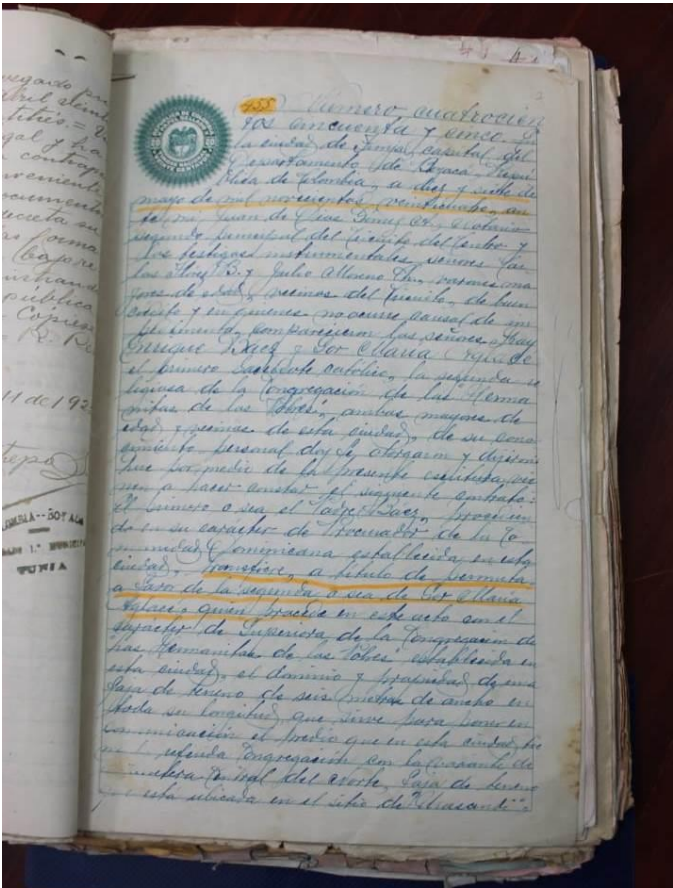 vegado por
Abril veinti
gal y ha
contrapr
veniente
ocumento
ecreta su
forma
(bajo re
istrando
publica
Copiese
11 de 192
LOMBIA--BOYACA
TUNJA
455 Número cuatrocien
tos cincuenta y cinco. En
la ciudad de Tunja, capital del
Departamento de Boyacá, Repú
blica de Colombia, a diez y siete de
mayo de mil novecientos veinticuatro, an
te mí Juan de Dios, Notario
segundo principal del Circuito del Centro y
los testigos instrumentales, señores Car
los B. y Julio Moreno Ch., varones ma
yores de edad, vecinos del Circuito, de buen
crédito y en quienes no ocurre causal de im
pedimento, comparecieron los señores Fray
Enrique Báez y Sor María Aglaée
el primero Sacerdote católico, la segunda re
ligiosa de la Congregación de las Herma
nitas de los Pobres, ambos mayores de
edad y vecinos de esta ciudad, de su cono
cimiento personal doy fe, otorgaron y dijeron:
que por medio de la presente escritura, vie
nen a hacer constar el siguiente contrato:
El primero o sea el Padre Báez, procedien
do en su carácter de Procurador de la Co
munidad Dominicana establecida en esta
ciudad, transfiere, a título de permuta
a favor de la segunda o sea de Sor María
Aglaée, quien procede en este acto con el
carácter de Superiora de la Congregación de
las Hermanitas de los Pobres establecida en
esta ciudad, el dominio y propiedad de una
faja de terreno de seis metros de ancho en
toda su longitud, que sirve para poner en
comunicación el predio que en esta ciudad tie
ne la referida Congregación con la
carretera Central del Norte, faja de terreno
que está ubicada en el sitio de